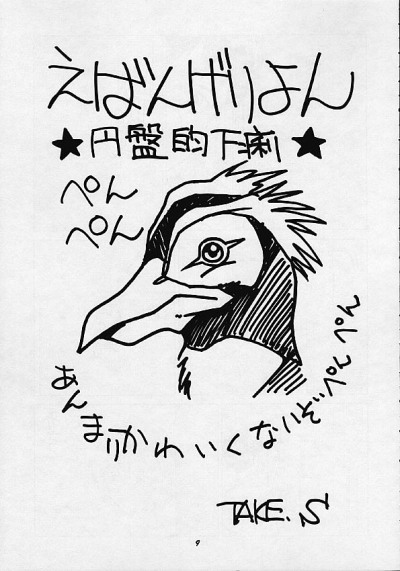 えばんげりよん
★円盤的下痢★
ぺん
ぺん
あんまりかわいくないぞぺんぺん
TAKE.S
9